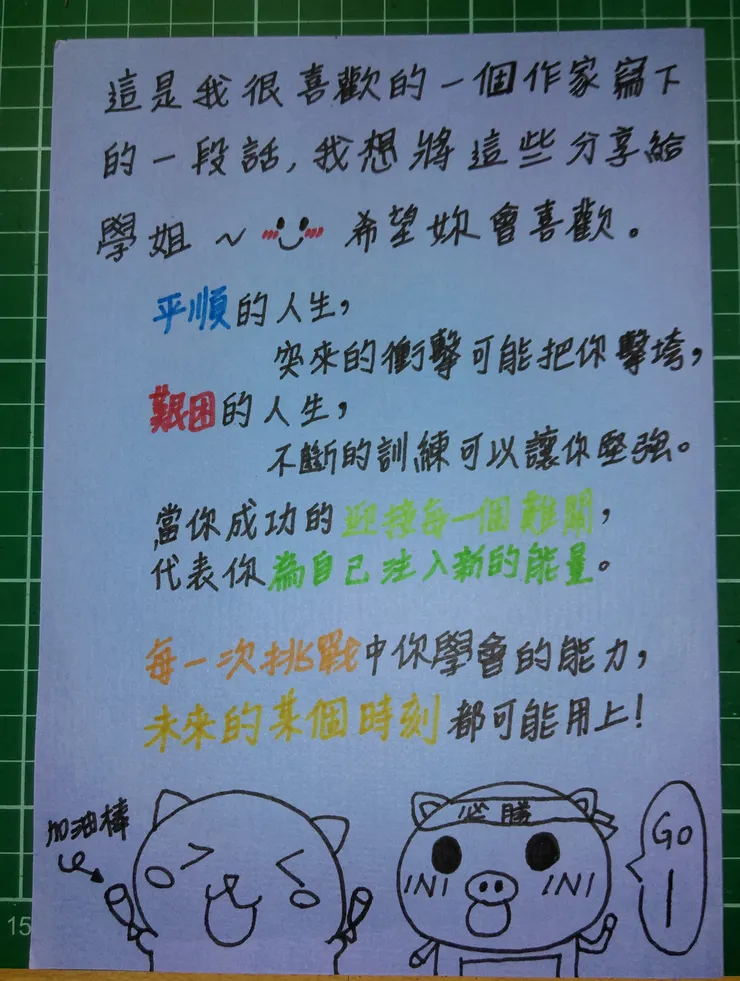 這是我很喜歡的一個作家寫下
的一段話,我想將這些分享給
學姐~ 希望妳會喜歡。
平順的人生,
突來的衝擊可能把你擊垮,
艱困的人生,
不斷的訓練可以讓你堅強。
當你成功的迎接每一個難關,
代表你為自己注入新的能量。
每一次挑戰中你學會的能力,
未來的某個時刻都可能用上!
加油棒
必勝
Go
15